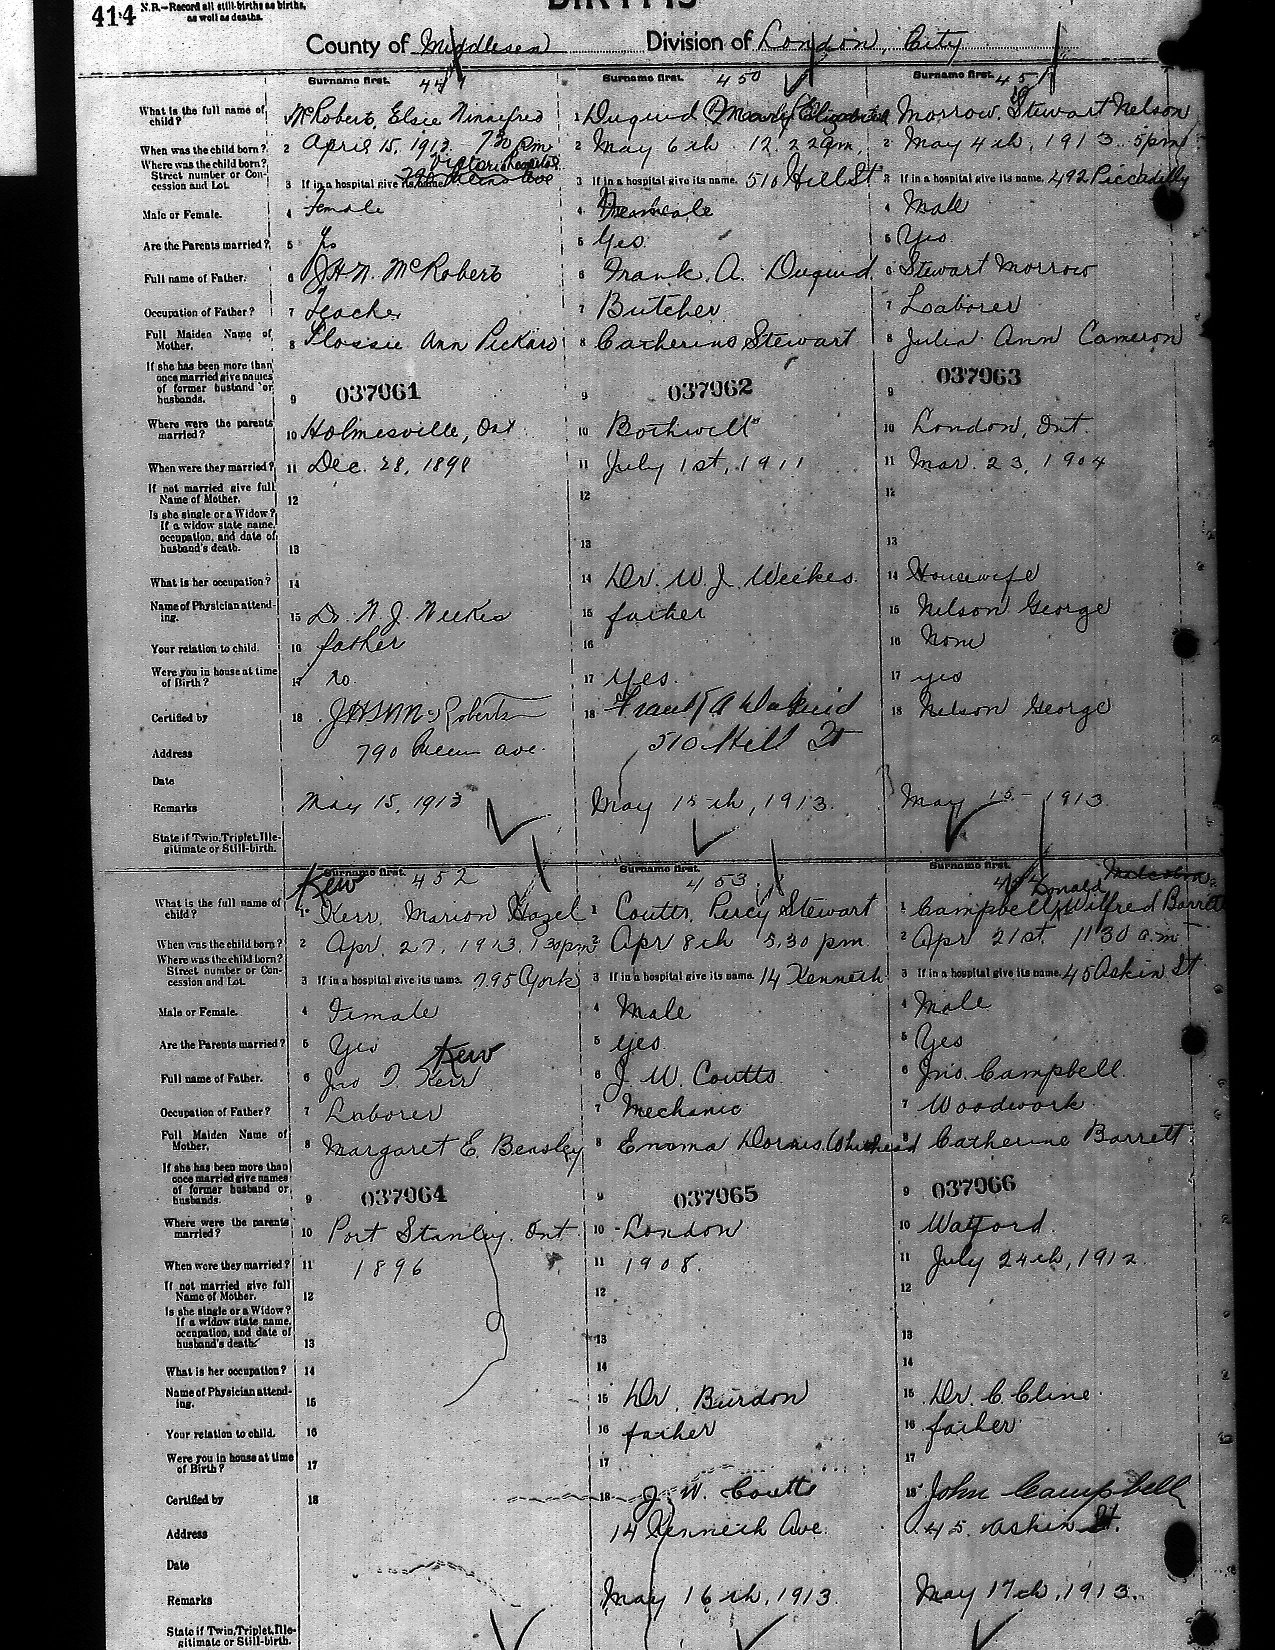 414 N.B.—Record all still-births as births,
as well as deaths.
BIRTHS
County of Middlesex Division of London, City
Surname first. Surname first. Surname first.
450 451
What is the full name of
child?
McRobert, Elsie Winnifred
1 Duguid Mary Elizabeth
Morrow, Stewart Nelson
When was the child born? 2 April 15, 1913. 730 pm
2 May 6th 12.22am.
2 May 4th, 1913. 5pm
Where was the child born?
Street number or Con-
cession and Lot.
Victoria Hospital
3 If in a hospital give its name.
3 If in a hospital give its name. 510 Hill St
3 If in a hospital give its name. 492 Piccadilly
Male or Female. 4 female
4 Female
4 Male
Are the Parents married? 5 Yes
5 Yes
5 Yes
Full name of Father. 6 McRoberts
6 Frank. A. Duguid
6 Stewart Morrow
Occupation of Father? 7 Teacher
7 Butcher
7 Laborer
Full Maiden Name of
Mother. 8 Flossie Ann Pickard
8 Catherine Stewart
8 Julia Ann Cameron
If she has been more than
once married give names
of former husband or
husbands. 9 037061
9 037062
9 037063
Where were the parents
married? 10 Holmesville, Ont
10 Bothwell
10 London, Ont.
When were they married? 11 Dec. 28, 1898
11 July 1st, 1911
11 Mar. 23, 1904
If not married give full
Name of Mother. 12
12
12
Is she single or a Widow?
If a widow state name,
occupation, and date of
husband's death. 13
13
13
What is her occupation? 14
14 Dr. W. J. Weekes.
14 Housewife
Name of Physician attend-
ing. 15 Dr. W. J. Weekes
15 father
15 Nelson George
Your relation to child. 16 father
16
16 None
Were you in house at time
of Birth? 17 no.
17 yes.
17 yes
Certified by 18 McRoberts
18 Frank A Duguid
18 Nelson George
Address 790 ave.
510 Hill St
Date
Remarks May 15, 1913
May 15th, 1913.
May 15- 1913.
State if Twin, Triplet, Ille-
gitimate or Still-birth.
Surname first. Surname first. Surname first.
Kew 452 453
Donald Malcolm
What is the full name of
child? 1 Kerr, Marion Hazel
1 Coutts, Percy Stewart
1 Campbell, Wilfred Barrett
When was the child born? 2 Apr. 27, 1913. 130pm
2 Apr 8th 5.30 pm.
2 Apr 21st. 11 30 a.m
Where was the child born?
Street number or Con-
cession and Lot.
3 If in a hospital give its name. 795 York
3 If in a hospital give its name. 14 Kenneth
3 If in a hospital give its name. 45 Askin St
Male or Female. 4 Female
4 Male
4 Male
Are the Parents married? 5 Yes
5 yes
5 Yes
Kew
Full name of Father. 6 Jno I. Kerr
6 J. W. Coutts.
6 Jno. Campbell.
Occupation of Father? 7 Laborer
7 Mechanic
7 Woodwork
Full Maiden Name of
Mother. 8 Margaret E. Beasley
8 Emma Whitehead
8 Catherine Barrett
If she has been more than
once married give names
of former husband or
husbands. 9 037064
9 037065
9 037066
Where were the parents
married? 10 Port Stanley. Ont
10 London
10 Watford.
When were they married? 11 1896
11 1908.
11 July 24th, 1912
If not married give full
Name of Mother. 12
12
12
Is she single or a Widow?
If a widow state name,
occupation, and date of
husband's death. 13
13
13
What is her occupation? 14
14
14
Name of Physician attend-
ing. 15
15 Dr. Burdon
15 Dr. C. Cline.
Your relation to child. 16
16 father
16 father
Were you in house at time
of Birth? 17
17
17
Certified by 18
18 J. W. Coutts
18 John Campbell
Address
14 Kenneth Ave.
45. Askin St.
Date
Remarks
May 16th, 1913.
May 17th, 1913.
State if Twin, Triplet, Ille-
gitimate or Still-birth.